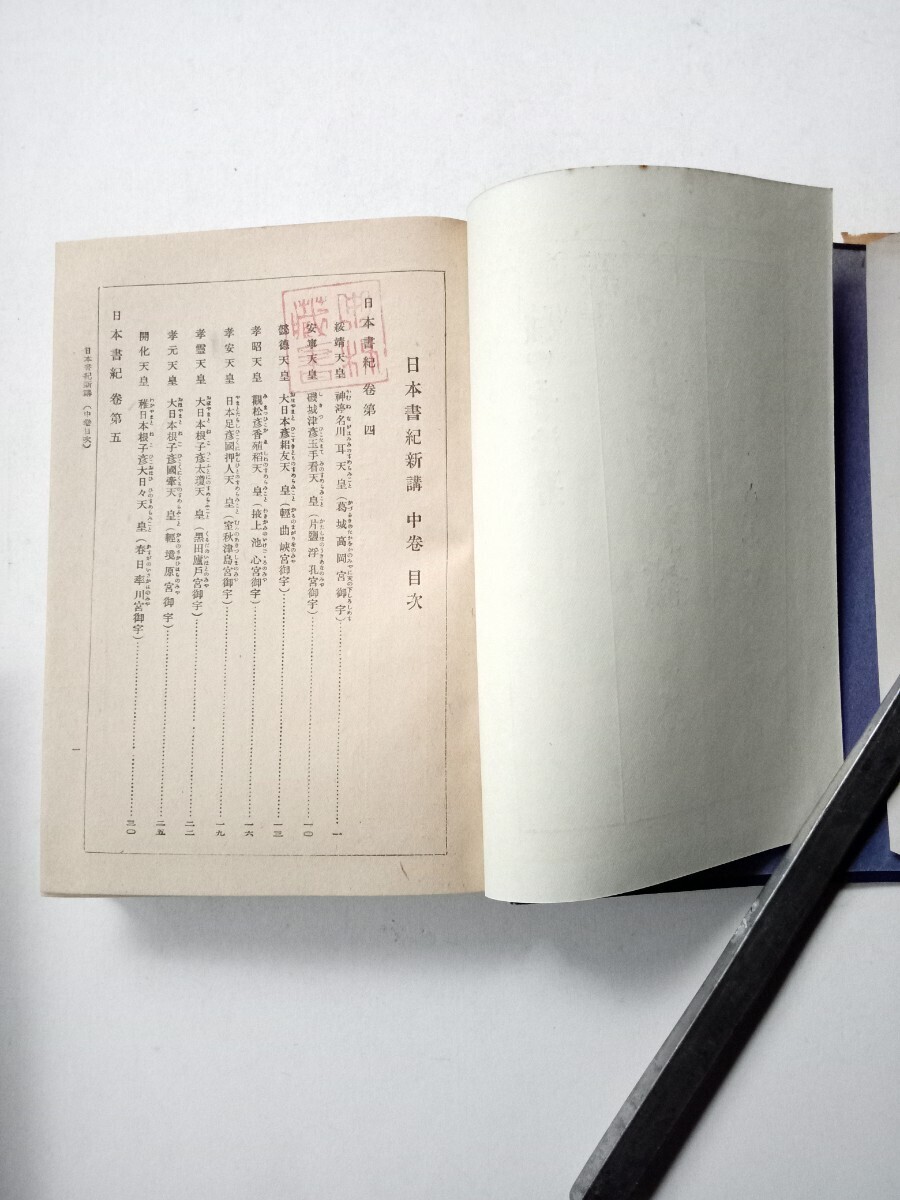 日本書紀新講 中卷 目次
日本書紀 卷第四
綏靖天皇 神渟名川耳天皇(葛城高岡宮御宇)……一
安寧天皇 磯城津彥玉手看天皇(片鹽浮孔宮御宇)……一〇
懿德天皇 大日本彥耜友天皇(輕曲峽宮御宇)……一三
孝昭天皇 觀松彥香殖稻天皇(掖上池心宮御宇)……一六
孝安天皇 日本足彥國押人天皇(室秋津島宮御宇)……一九
孝靈天皇 大日本根子彥太瓊天皇(黑田廬戶宮御宇)……二二
孝元天皇 大日本根子彥國牽天皇(輕境原宮御宇)……二五
開化天皇 稚日本根子彥大日々天皇(春日率川宮御宇)……三〇
日本書紀 卷第五
日本書紀新講(中卷目次)
一